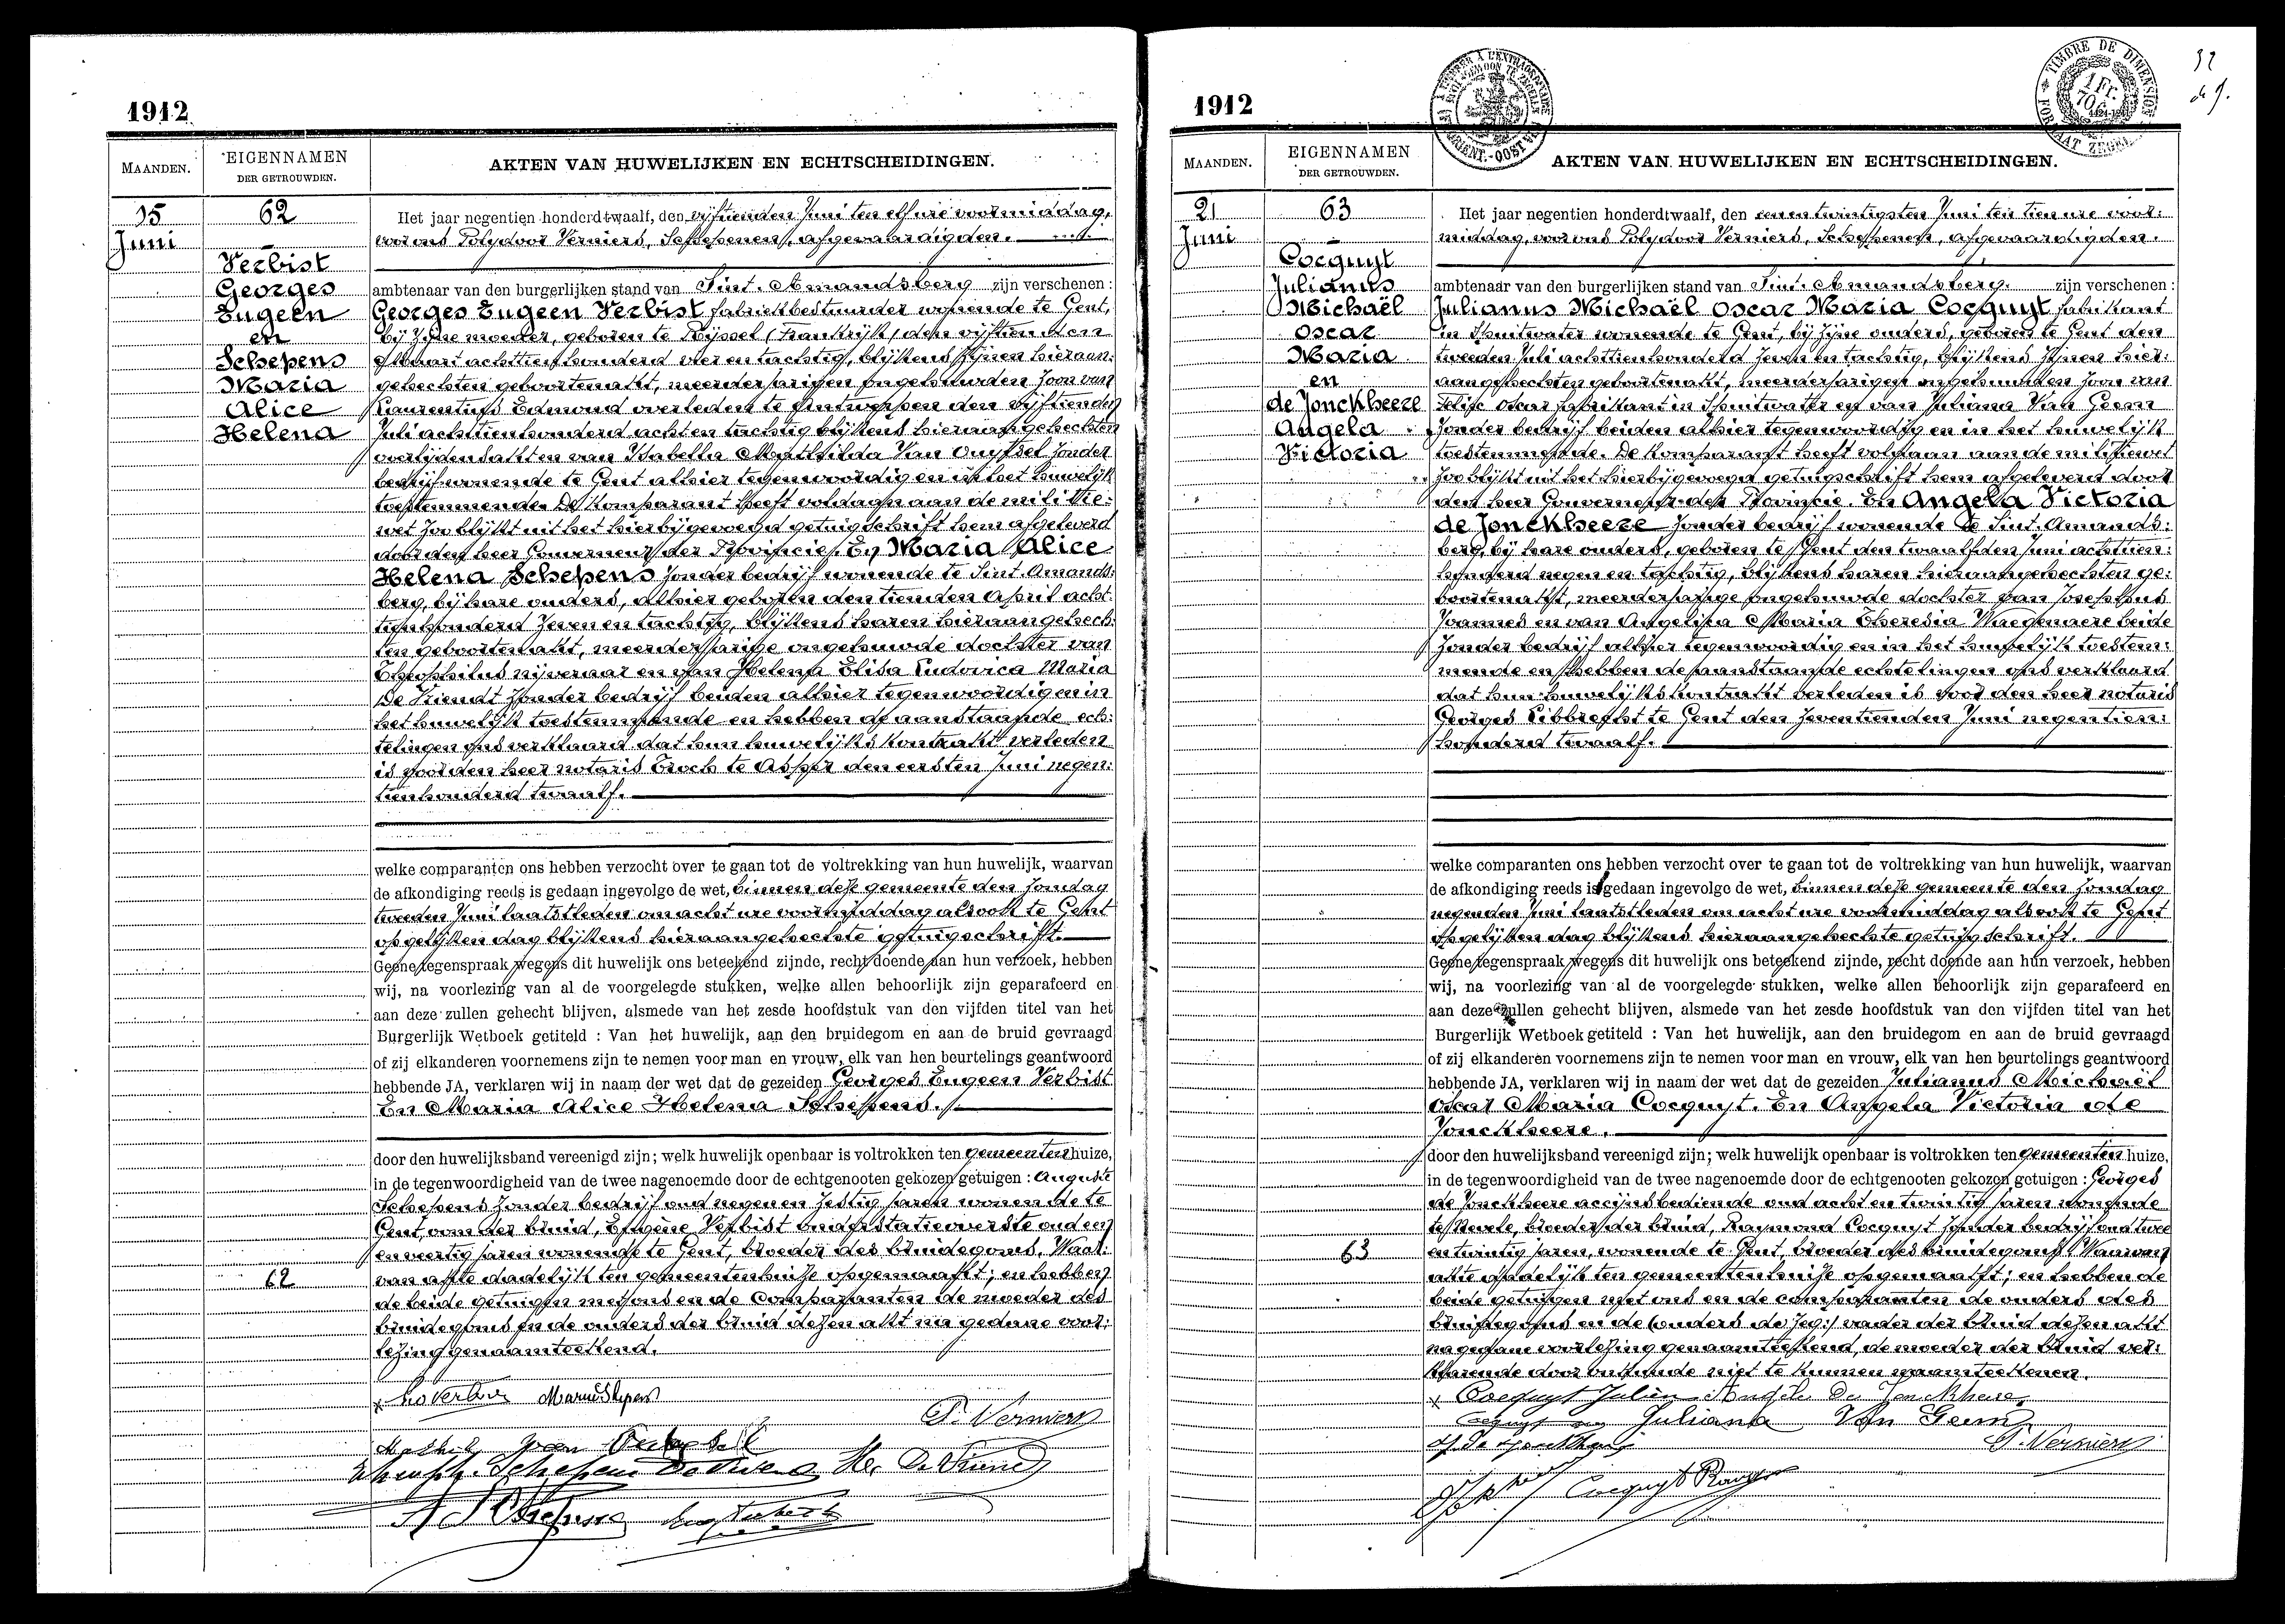 1912
MAANDEN.
EIGENNAMEN
DER GETROUWDEN.
AKTEN VAN HUWELIJKEN EN ECHTSCHEIDINGEN.
15
Juni
62
Verbist
Georges
Eugeen
en
Schepens
Maria
Alice
Helena
Het jaar negentien honderdtwaalf, den vijftienden Juni ten elf ure voormiddag,
voor ons Polydoor Verniers, Schepenen, afgevaardigden.
ambtenaar van den burgerlijken stand van Sint-Amandsberg zijn verschenen :
Georges Eugeen Verbist fabriekbestuurder wonende te Gent,
bij zijne moeder, geboren te Rijssel (Frankrijk) den vijftienden
Maart achttienhonderd vier en tachtig, blijkens zijnen hieraan:
gehechten geboortenakt, meerderjarigen ongehuwden zoon van
Laurentius Edmond overleden te Antwerpen den vijftienden
Juli achttienhonderd acht en tachtig blijkens hieraangehechten
overlijdensakt en van Isabella Mathilda Van Ouytsel zonder
bedrijf wonende te Gent alhier tegenwoordig en in het huwelijk
toestemmende. De komparant heeft voldaan aan de militie:
wet zoo blijkt uit het hierbijgevoegd getuigschrift hem afgeleverd
door den heer Gouverneur der Provincie. En Maria Alice
Helena Schepens zonder bedrijf wonende te Sint-Amands:
berg, bij hare ouders, alhier geboren den tienden April acht:
tienhonderd zeven en tachtig, blijkens haren hieraangehech:
ten geboortenakt, meerderjarige ongehuwde dochter van
Theophilus nijveraar en van Helena Elisa Ludovica Maria
De Vriendt zonder bedrijf beiden alhier tegenwoordig en in
het huwelijk toestemmende en hebben de aanstaande ech:
telingen ons verklaard dat hun huwelijkskontrakt verleden
is voor den heer notaris Troch te Asper den eersten Juni negen:
tienhonderd twaalf.
welke comparanten ons hebben verzocht over te gaan tot de voltrekking van hun huwelijk, waarvan
de afkondiging reeds is gedaan ingevolge de wet, binnen deze gemeente den zondag
tweeden Juni laatstleden om acht ure voormiddag alsook te Gent
op gelijken dag blijkens hieraangehechte getuigschrift.
Geene tegenspraak wegens dit huwelijk ons beteekend zijnde, recht doende aan hun verzoek, hebben
wij, na voorlezing van al de voorgelegde stukken, welke allen behoorlijk zijn geparafeerd en
aan deze zullen gehecht blijven, alsmede van het zesde hoofdstuk van den vijfden titel van het
Burgerlijk Wetboek getiteld : Van het huwelijk, aan den bruidegom en aan de bruid gevraagd
of zij elkanderen voornemens zijn te nemen voor man en vrouw, elk van hen beurtelings geantwoord
hebbende JA, verklaren wij in naam der wet dat de gezeiden Georges Eugeen Verbist
En Maria Alice Helena Schepens.
door den huwelijksband vereenigd zijn; welk huwelijk openbaar is voltrokken ten gemeentenhuize,
in de tegenwoordigheid van de twee nagenoemde door de echtgenooten gekozen getuigen : Auguste
Schepens zonder bedrijf oud negen en zestig jaren wonende te
Gent, oom der bruid, Eugène Verbist onderstatieoverste oud een
en veertig jaren wonende te Gent, broeder des bruidegoms. Waar:
62
van akte dadelijk ten gemeentenhuize opgemaakt; en hebben
de beide getuigen met ons en de comparanten de moeder des
bruidegoms en de ouders der bruid dezen akt na gedane voor:
lezing genaamteekend.
Marie Schepens
P. Verniers
1912
1 Fr.
TIMBRE DE DIMENSION
FORMAAT ZEGEL
32
MAANDEN.
EIGENNAMEN
DER GETROUWDEN.
AKTEN VAN HUWELIJKEN EN ECHTSCHEIDINGEN.
21
Juni
63
Cocquyt
Julianus
Michaël
Oscar
Maria
en
de Jonckheere
Angela
Victoria
Het jaar negentien honderdtwaalf, den eenen twintigsten Juni ten tien ure voor:
middag, voor ons Polydoor Verniers, Schepenen, afgevaardigden.
ambtenaar van den burgerlijken stand van Sint-Amandsberg. zijn verschenen :
Julianus Michaël Oscar Maria Cocquyt fabrikant
in spuitwater wonende te Gent, bij zijne ouders, geboren te Gent den
tweeden Juli achttienhonderd zeven en tachtig, blijkens zijnen hier:
aangehechten geboortenakt, meerderjarigen ongehuwden zoon van
Felix Oscar fabrikant in spuitwater en van Juliana Van Geem
zonder bedrijf beiden alhier tegenwoordig en in het huwelijk
toestemmende. De komparant heeft voldaan aan de militiewet
zoo blijkt uit het hierbijgevoegd getuigschrift hem afgeleverd door
den heer Gouverneur der Provincie. En Angela Victoria
de Jonckheere zonder bedrijf wonende te Sint-Amands:
berg, bij hare ouders, geboren te Gent den twaalfden Juni achttien:
honderd negen en tachtig, blijkens haren hieraangehechten ge:
boortenakt, meerderjarige ongehuwde dochter van Josephus
Joannes en van Angelina Maria Theresia Waegenaere beide
zonder bedrijf alhier tegenwoordig en in het huwelijk toestem:
mende en hebben de aanstaande echtelingen ons verklaard
dat hun huwelijkskontrakt verleden is voor den heer notaris
Georges Libbrecht te Gent den zeventienden Juni negentien:
honderd twaalf.
welke comparanten ons hebben verzocht over te gaan tot de voltrekking van hun huwelijk, waarvan
de afkondiging reeds is gedaan ingevolge de wet, binnen deze gemeente den zondag
negenden Juni laatstleden om acht ure voormiddag alsook te Gent
op gelijken dag blijkens hieraangehechte getuigschrift.
Geene tegenspraak wegens dit huwelijk ons beteekend zijnde, recht doende aan hun verzoek, hebben
wij, na voorlezing van al de voorgelegde stukken, welke allen behoorlijk zijn geparafeerd en
aan deze zullen gehecht blijven, alsmede van het zesde hoofdstuk van den vijfden titel van het
Burgerlijk Wetboek getiteld : Van het huwelijk, aan den bruidegom en aan de bruid gevraagd
of zij elkanderen voornemens zijn te nemen voor man en vrouw, elk van hen beurtelings geantwoord
hebbende JA, verklaren wij in naam der wet dat de gezeiden Julianus Michaël
Oscar Maria Cocquyt. En Angela Victoria de
Jonckheere.
door den huwelijksband vereenigd zijn; welk huwelijk openbaar is voltrokken ten gemeenten huize,
in de tegenwoordigheid van de twee nagenoemde door de echtgenooten gekozen getuigen : Georges
de Jonckheere accijnsbediende oud acht en twintig jaren wonende
te Nevele, broeder der bruid, Raymond Cocquyt zonder bedrijf oud twee
63
en twintig jaren, wonende te Gent, broeder des bruidegoms. Waarvan
akte dadelijk ten gemeentenhuize opgemaakt; en hebben de
beide getuigen met ons en de comparanten de ouders des
bruidegoms en de (ouders de zeg:) vader der bruid dezen akt
na gedane voorlezing genaamteekend, de moeder der bruid ver:
klarende door onkunde niet te kunnen naamteekenen.
Cocquyt Julien Angèle De Jonckheere
Juliana Van Geem
P. Verniers
Cocquyt